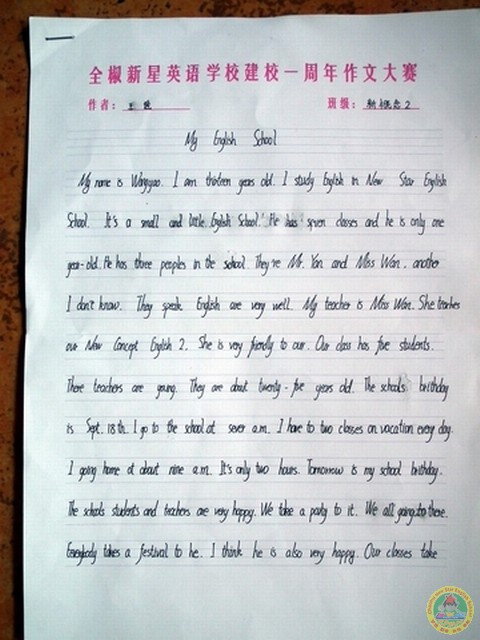 全椒新星英语学校建校一周年作文大赛
作者： 班级： 新概念2
My English School
My name is Wangyao. I am thirteen years old. I study English in New Star English
School. It's a small and little English School. He has seven classes and he is only one
year-old. He has three peoples in the school. They're Mr. Yan and Miss Wan. another
I don't know. They speak English are very well. My teacher is Miss Wan. She teaches
our New Concept English 2. She is very friendly to our. Our class has five students.
There teachers are young. They are about twenty-five years old. The schools birthday
is Sept. 18th. I go to the school at seven a.m. I have to two classes on vacation every day.
I going home at about nine a.m. It's only two hours. Tomorrow is my school birthday.
The schools students and teachers are very happy. We take a party to it. We all going to there.
Everybody takes a festival to he. I think he is also very happy. Our classes take